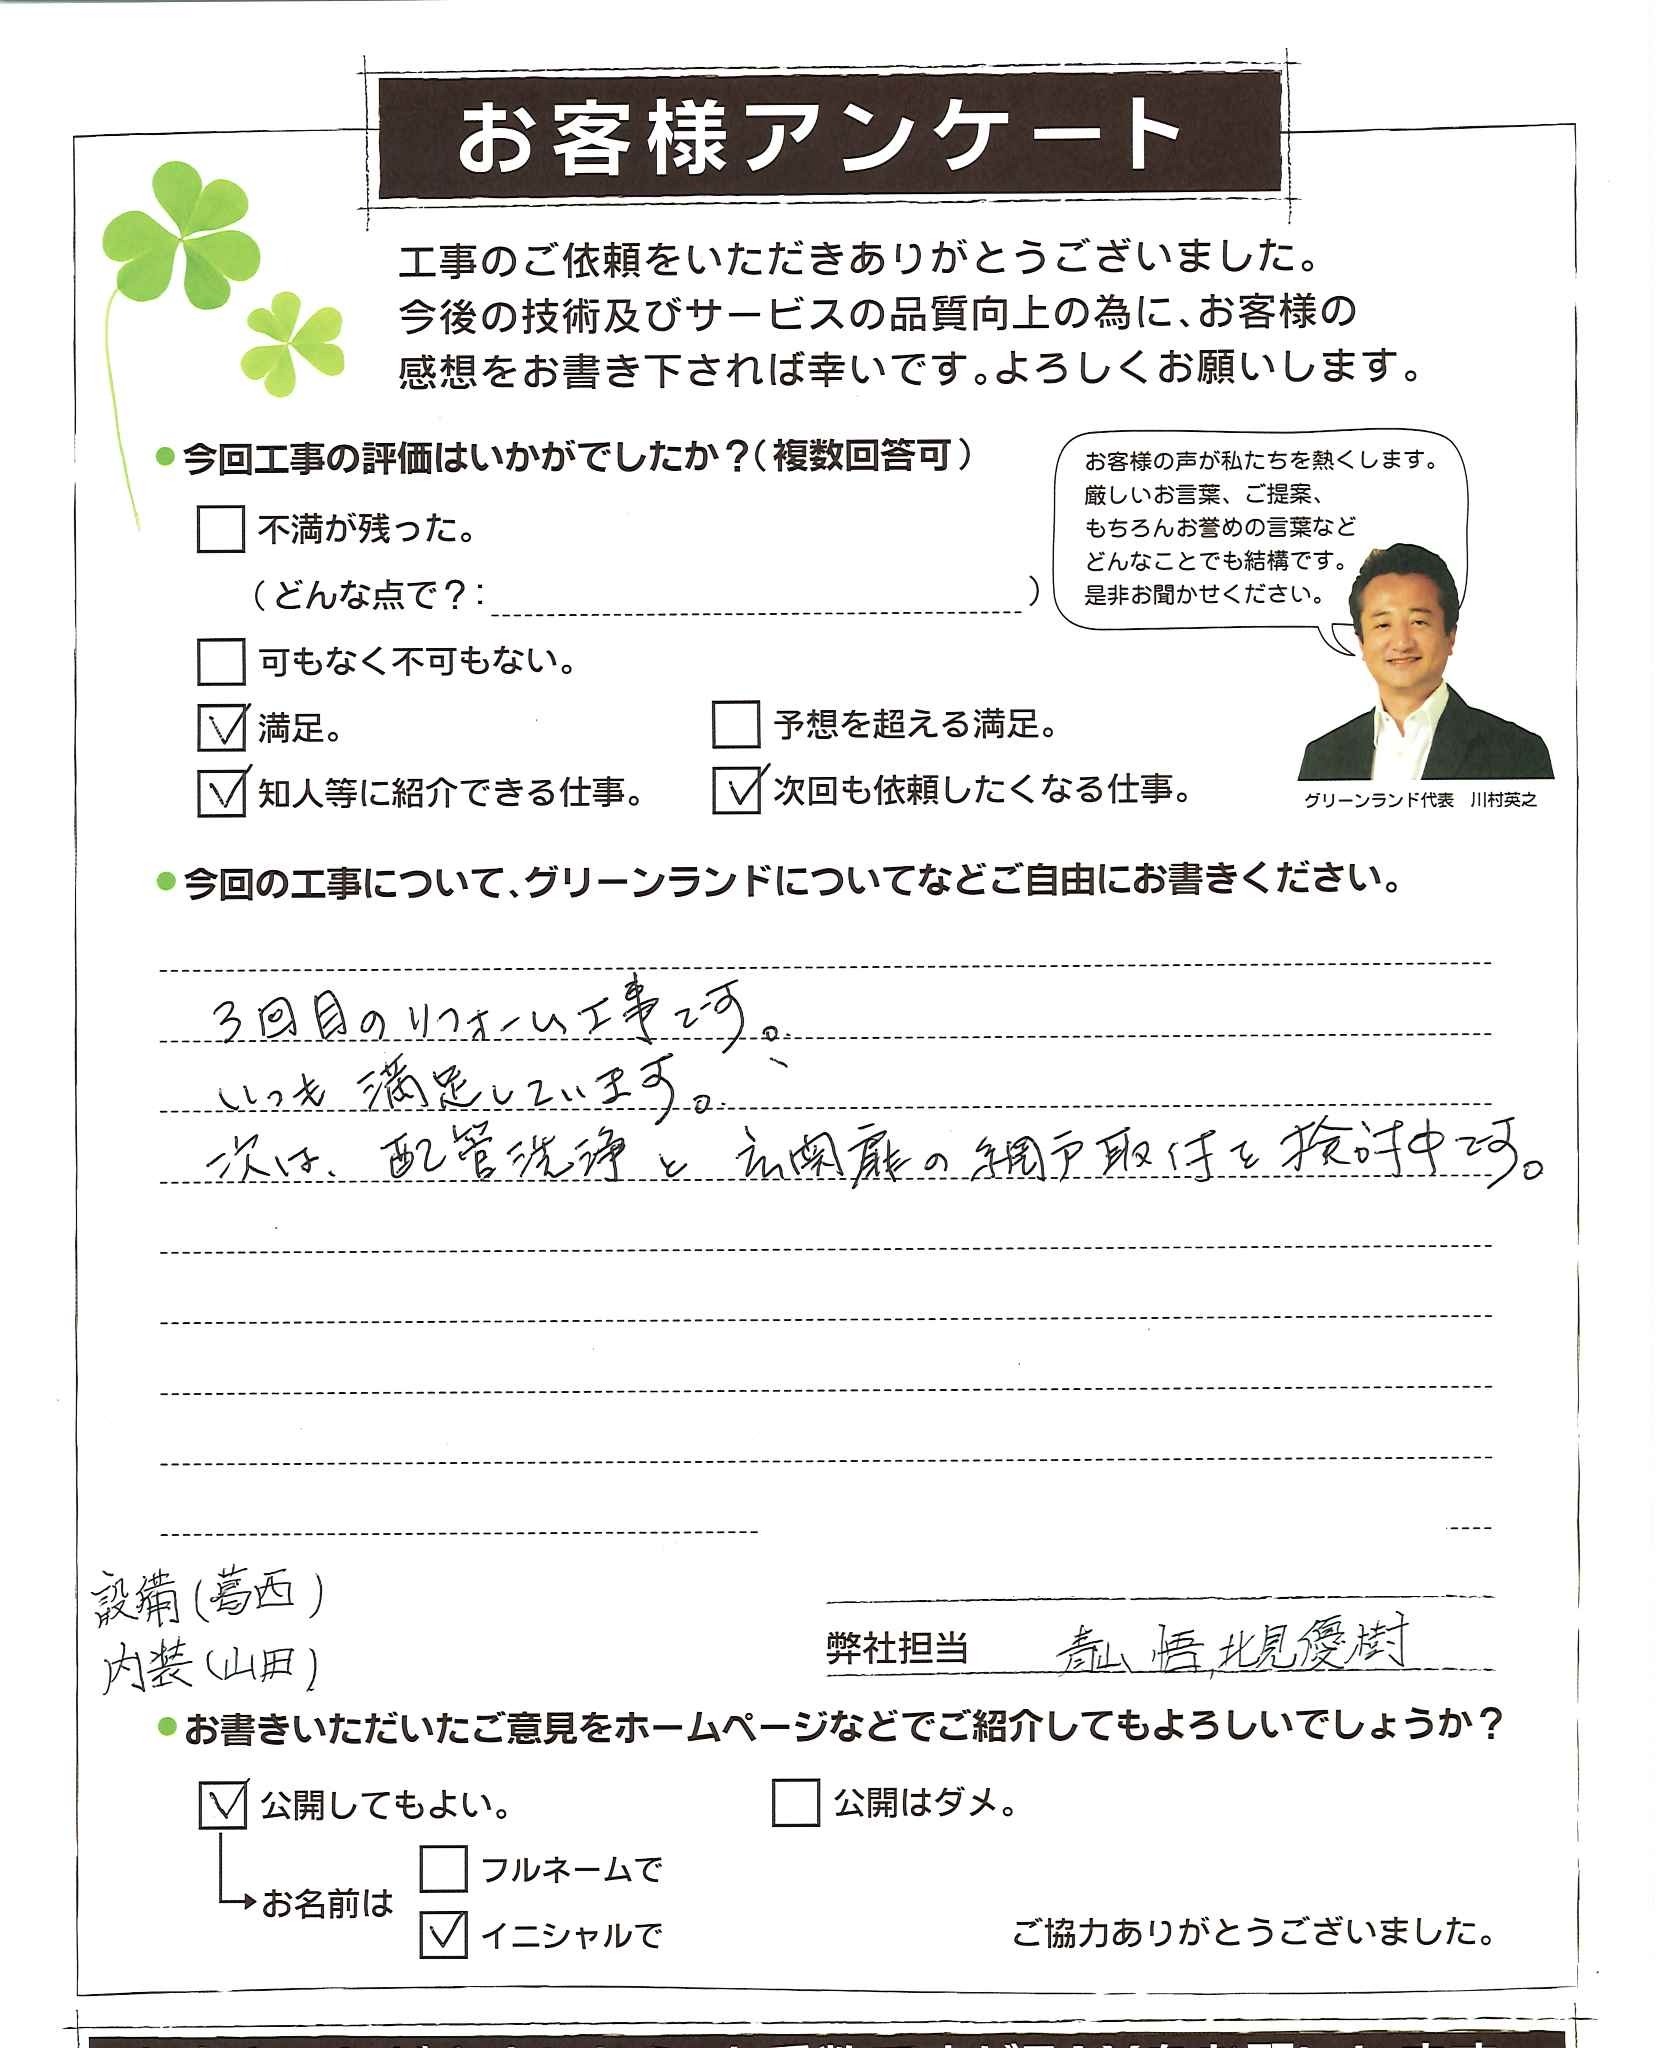 お客様アンケート
工事のご依頼をいただきありがとうございました。
今後の技術及びサービスの品質向上の為に、お客様の
感想をお書き下されば幸いです。よろしくお願いします。
●今回工事の評価はいかがでしたか？（複数回答可）
□ 不満が残った。
（どんな点で？：　　）
□ 可もなく不可もない。
☑ 満足。
□ 予想を超える満足。
☑ 知人等に紹介できる仕事。
☑ 次回も依頼したくなる仕事。
お客様の声が私たちを熱くします。
厳しいお言葉、ご提案、
もちろんお誉めの言葉など
どんなことでも結構です。
是非お聞かせください。
グリーンランド代表　川村英之
●今回の工事について、グリーンランドについてなどご自由にお書きください。
3回目のリフォーム工事です。
いつも満足しています。
次は、配管洗浄と玄関扉の網戸取付を検討中です。
設備(葛西)
内装(山田)
弊社担当　青山 悟, 北見優樹
●お書きいただいたご意見をホームページなどでご紹介してもよろしいでしょうか？
☑ 公開してもよい。
□ 公開はダメ。
お名前は
□ フルネームで
☑ イニシャルで
ご協力ありがとうございました。